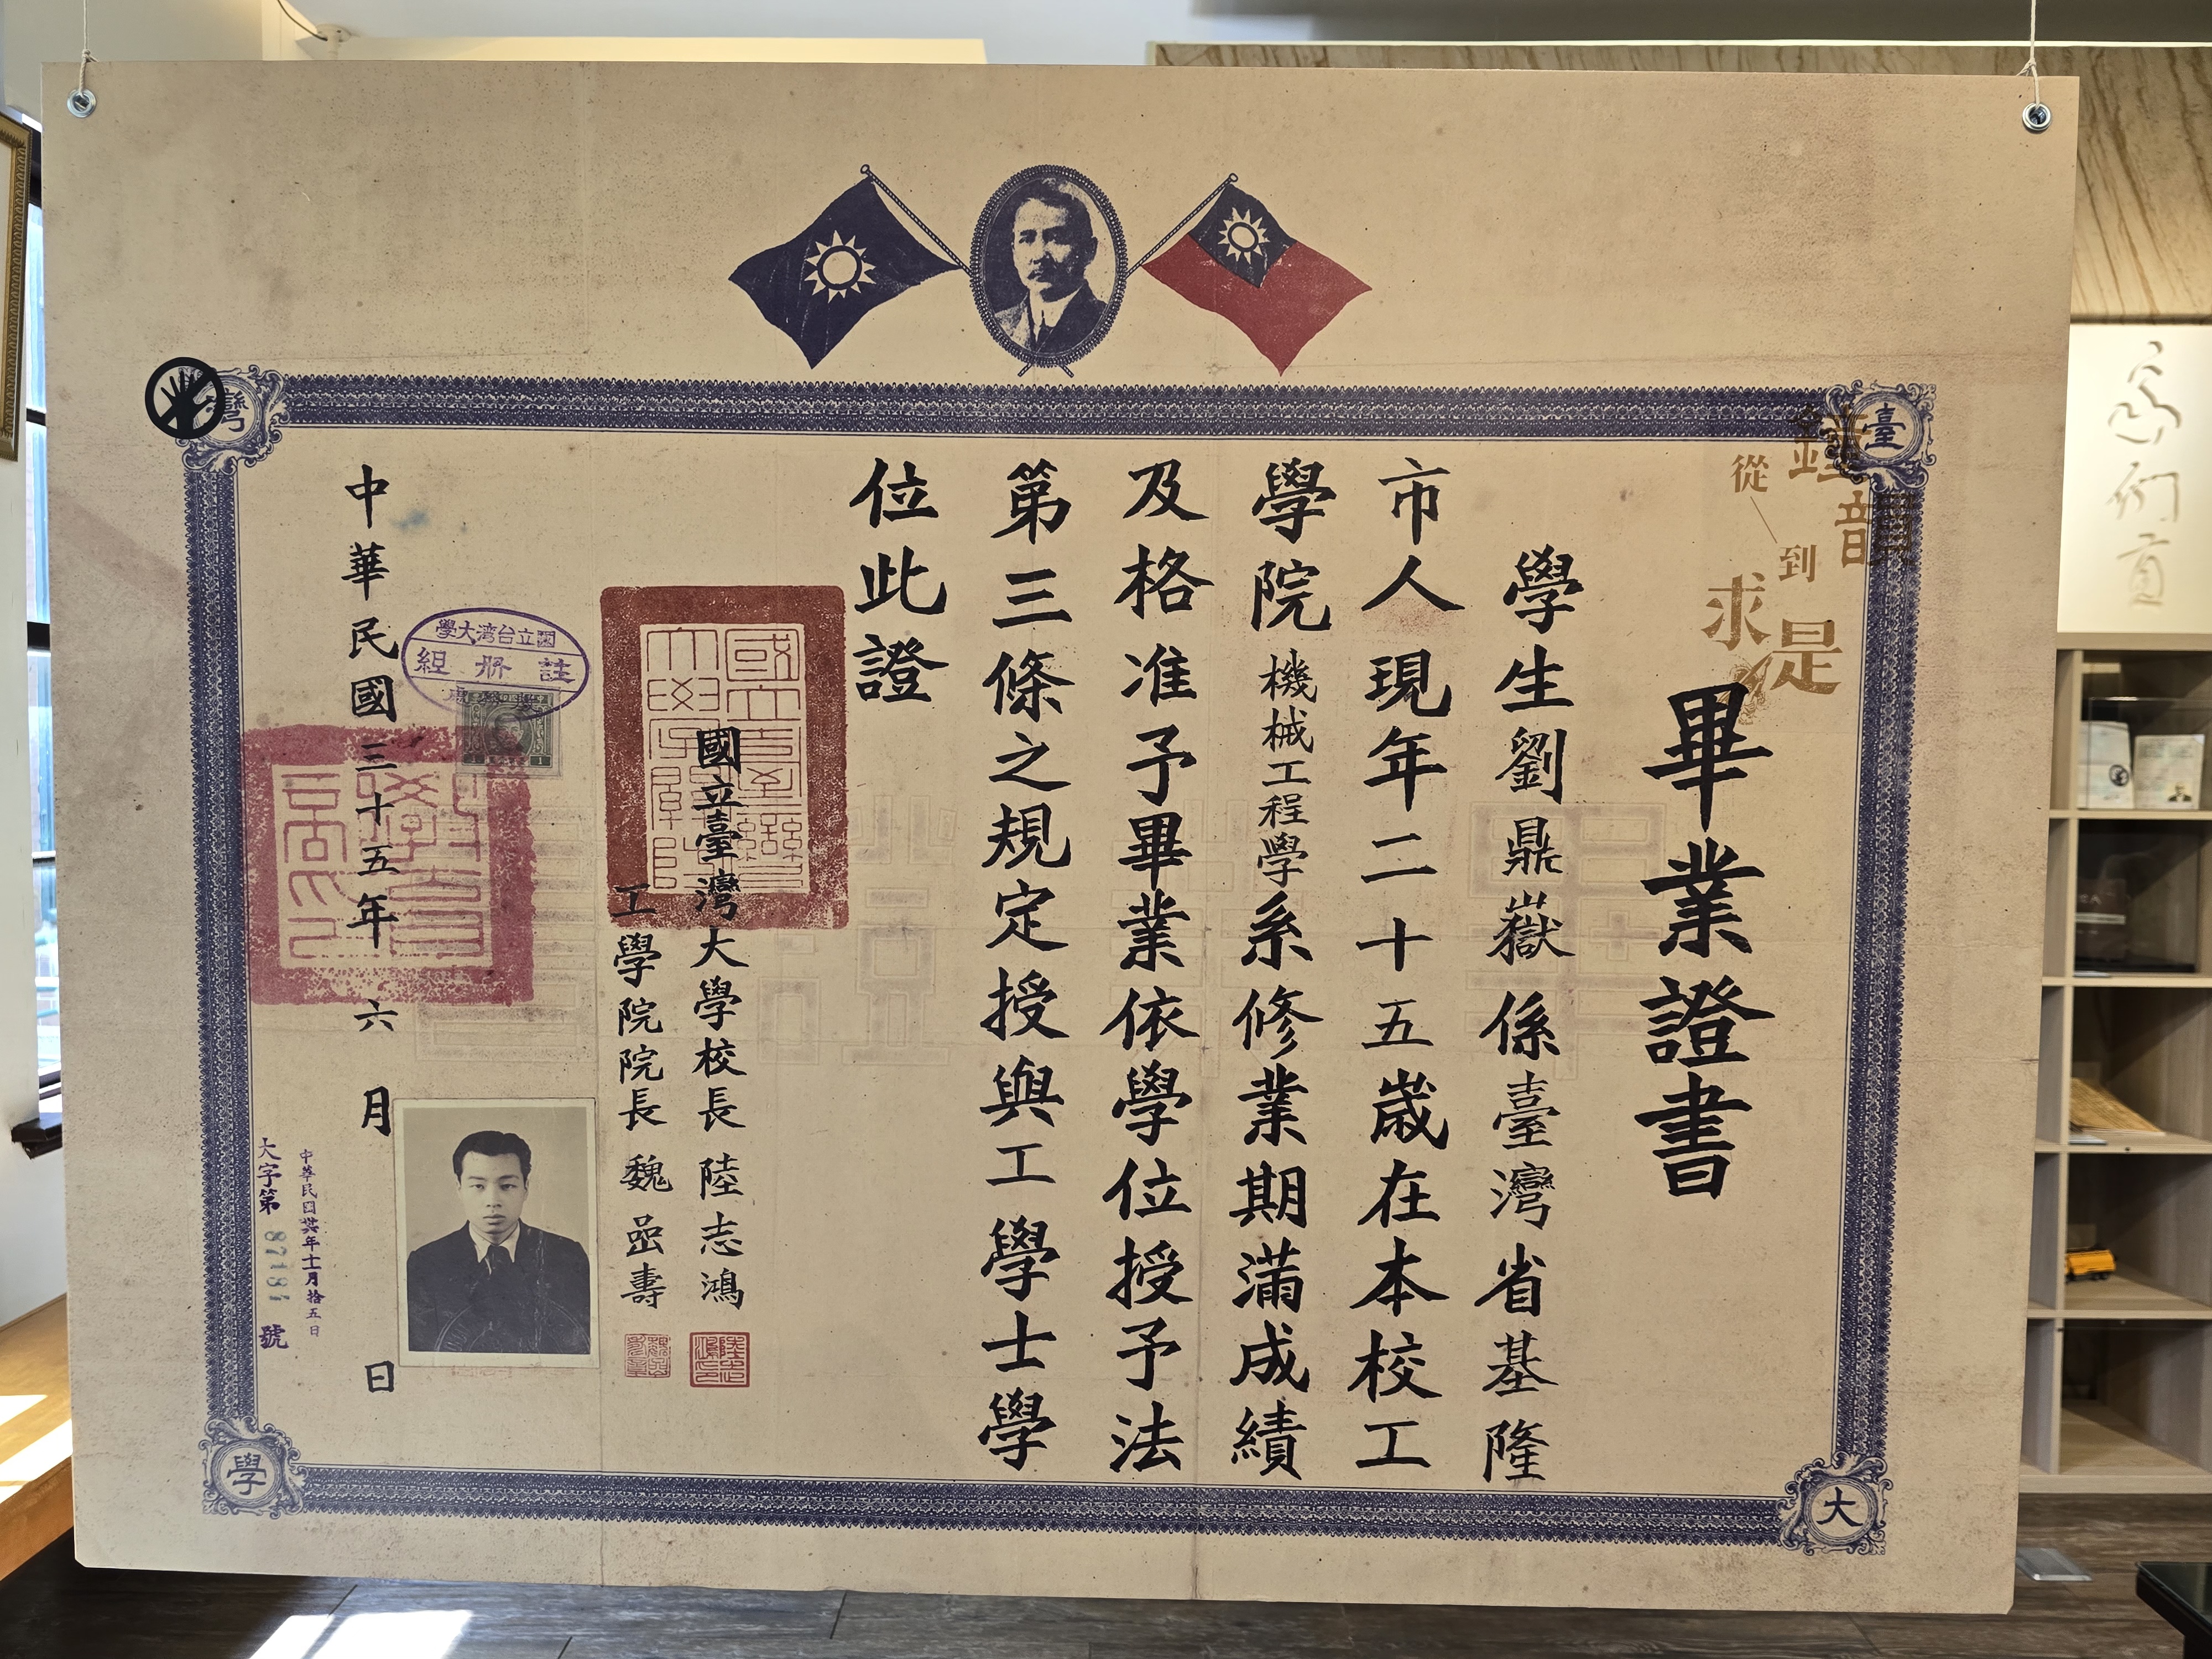 畢業證書
學生劉鼎嶽係臺灣省基隆
市人現年二十五歲在本校工
學院機械工程學系修業期滿成績
及格准予畢業依學位授予法
第三條之規定授與工學士學
位此證
國立臺灣大學校長 陸志鴻
工學院院長 魏嵒壽
中華民國三十五年六月 日
國立台湾大學
註冊組
大字第 號
臺
灣
大
學
鐘韻
從
到
求是